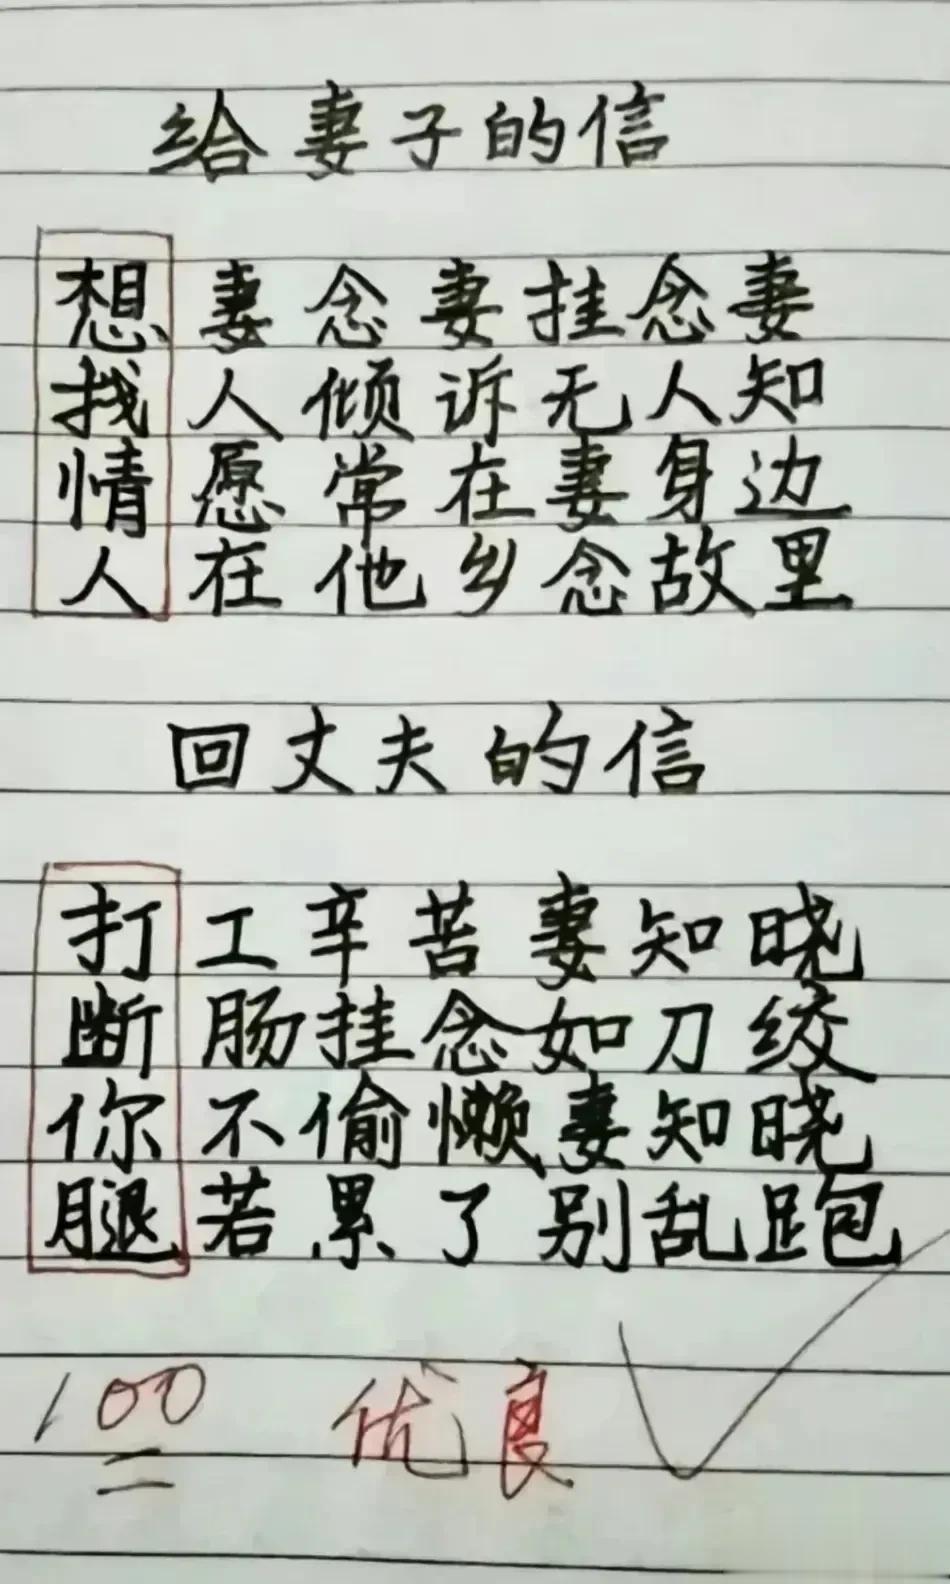 给妻子的信
想妻念妻挂念妻
找人倾诉无人知
情愿常在妻身边
人在他乡念故里
回丈夫的信
打工辛苦妻知晓
断肠挂念如刀绞
你不偷懒妻知晓
腿若累了别乱跑
100 优良